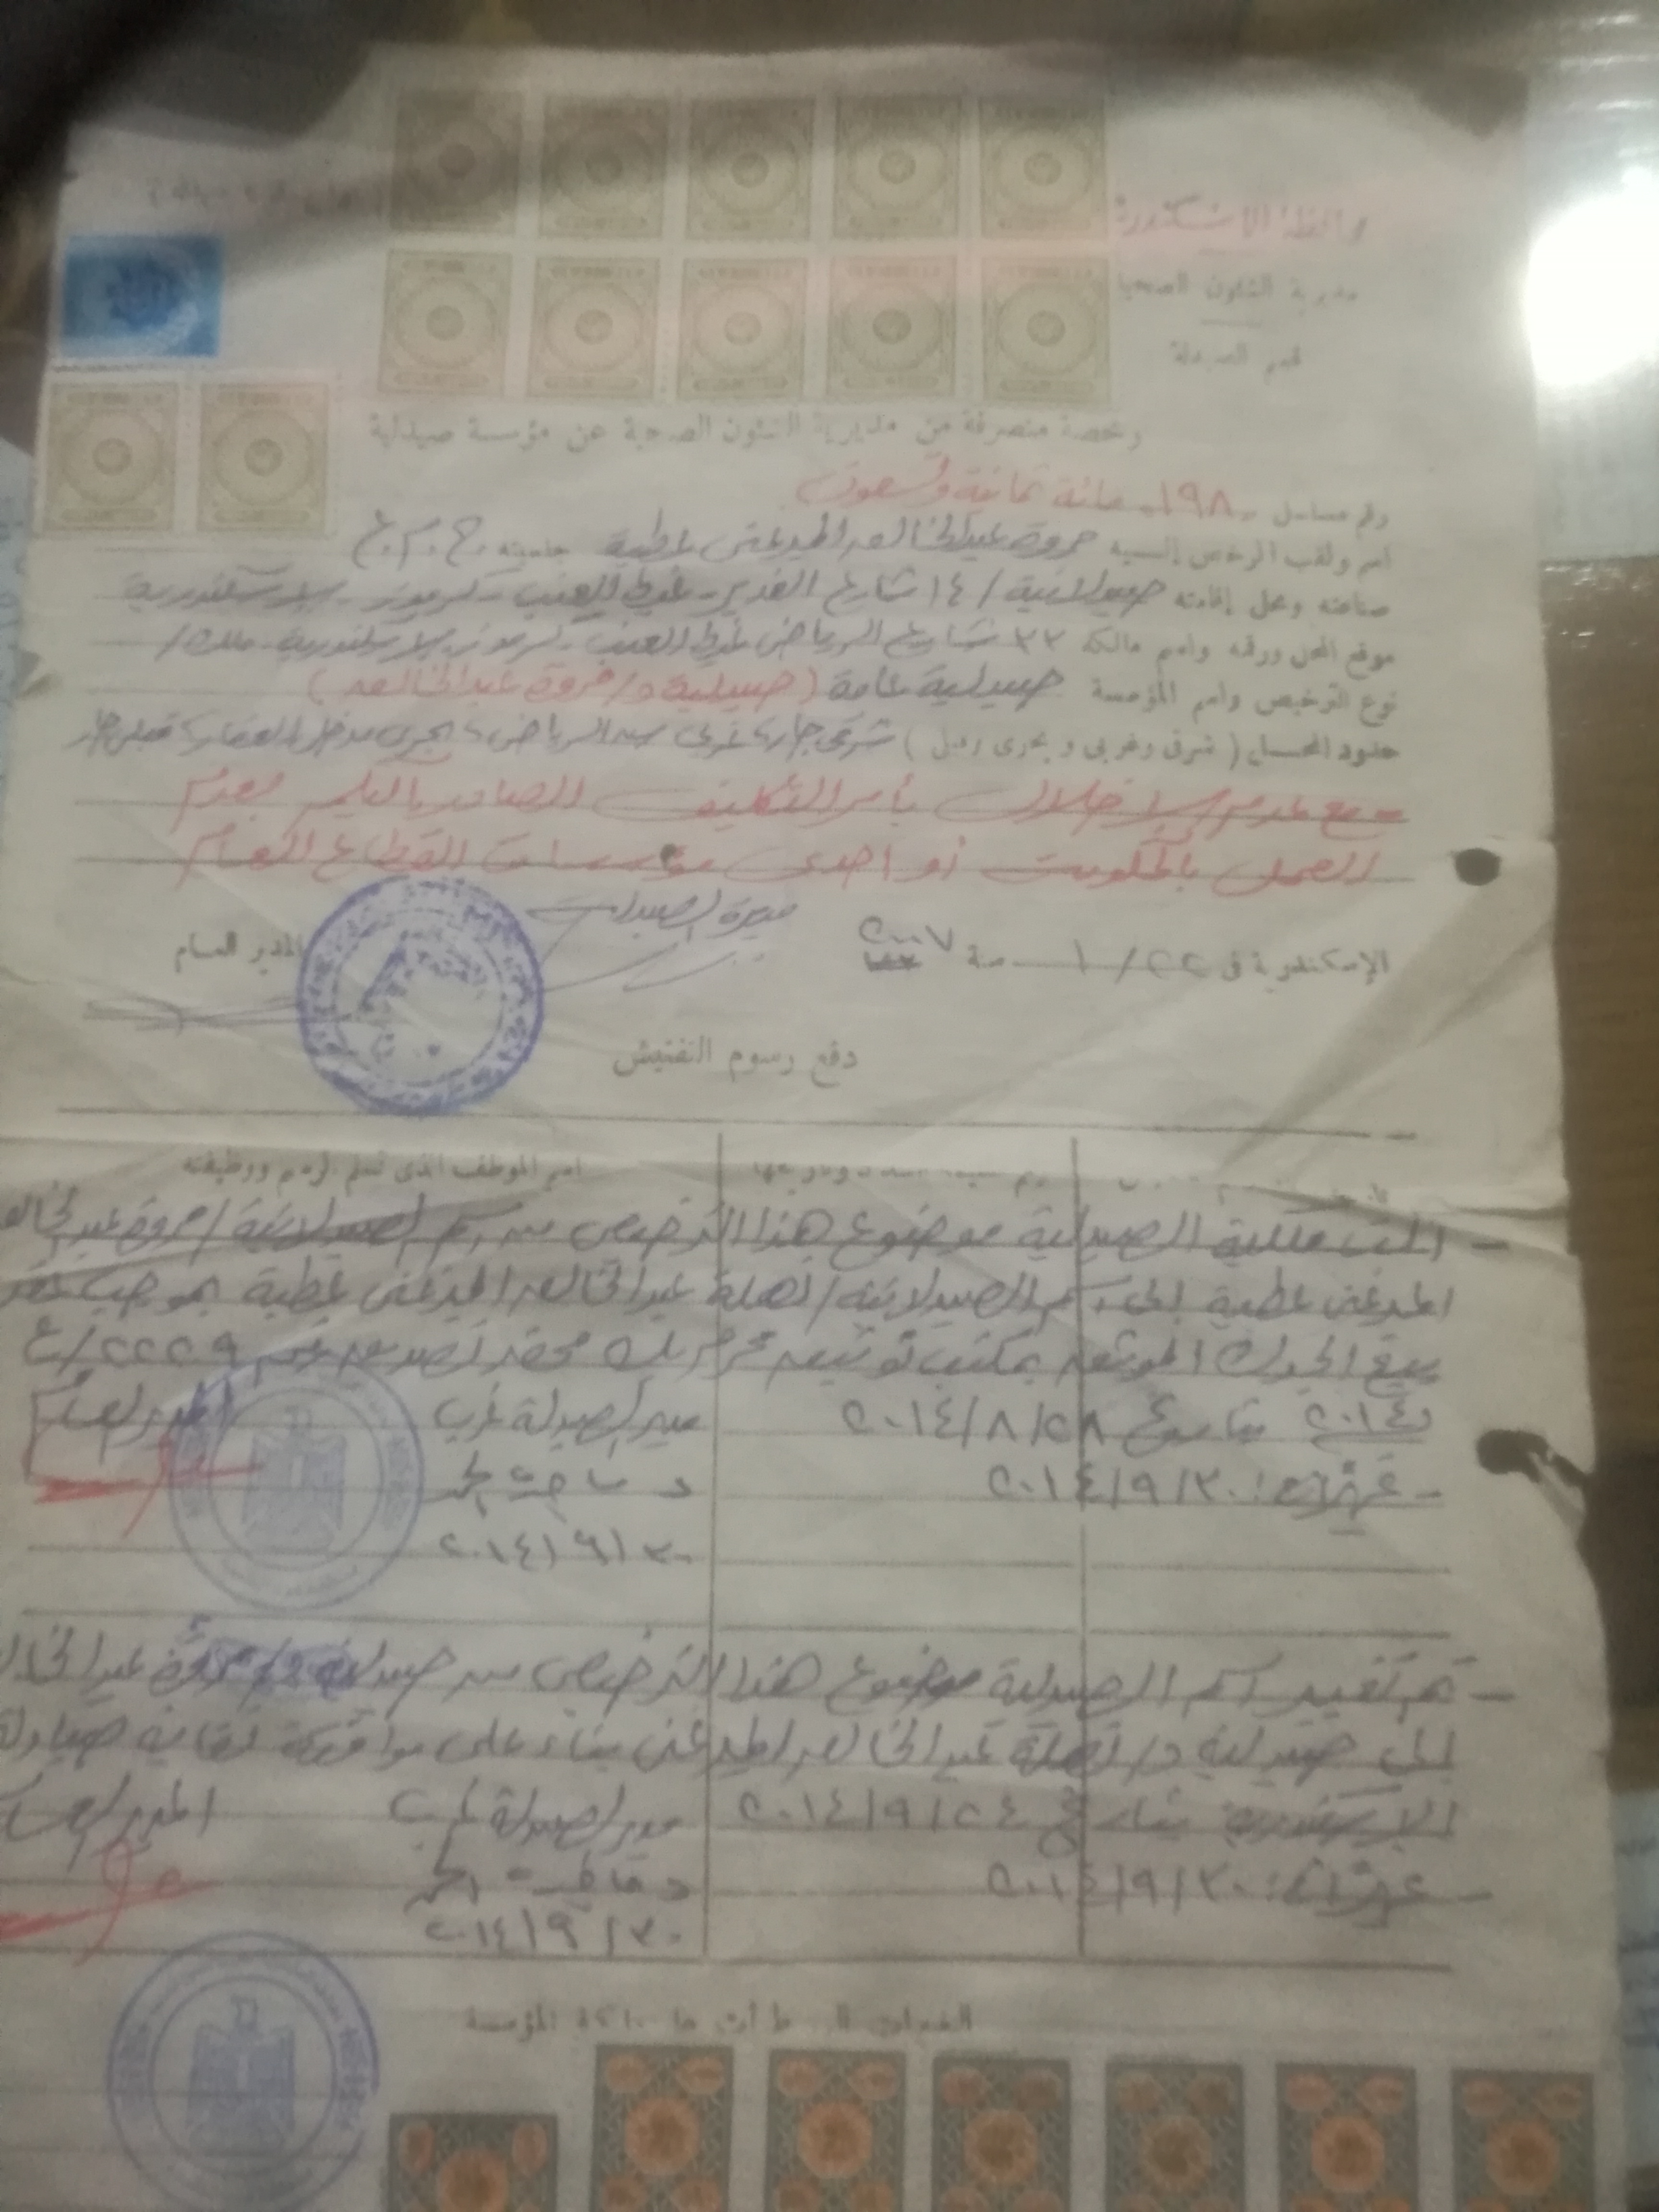 محافظة الإسكندرية
مديرية الشئون الصحية
قسم الصيدلة
رخصة منصرفة من مديرية الشئون الصحية عن مؤسسة صيدلية
رقم مسلسل -١٩٨- مائة ثمانية وتسعون
اسم ولقب المرخص إليه مروة عبد الخالق المرغنى عطية جنسيته ج.م.ع
صناعته ومحل إقامته صيدلانية / ١٤ شارع الغدير - غيط العنب - كرموز - الاسكندرية
موقع المحل ورقمه واسم مالكه ٣٣ شارع الرياض غيط العنب - كرموز - الاسكندرية - ملك /
نوع الترخيص واسم المؤسسة صيدلية عامة (صيدلية د/ مروة عبد الخالق)
حدود المحل (شرقى وغربى وبحرى وقبلى) شرقى جار، غربى ش الرياض، بحرى مدخل العقار، قبلى جار
- مع عدم الاخلال بأمر التكليف الصادر بالعلم بعدم
العمل بالحكومة أو احدى مؤسسات القطاع العام
مديرة الصيدلة
الإسكندرية فى ٢٢ / ١ سنة ٢٠٠٧
المدير العام
دفع رسوم التفتيش
اسم الموظف الذى تسلم الرسم ووظيفته
- انتقلت ملكية الصيدلية موضوع هذا الترخيص من اسم الصيدلانية / مروة عبد الخالق
المرغنى عطية إلى اسم الصيدلانية / نهلة عبد الخالق المرغنى عطية بموجب عقد
بيع الجدك الموثق بمكتب توثيق محرم بك محضر تصديق رقم ٢٢٢٩ / ع
٢٠١٤ بتاريخ ٢٨/٨/٢٠١٤
مدير الصيدلة غرب
المدير العام
٣٠/٩/٢٠١٤
٣٠/٩/٢٠١٤
- تم تغيير اسم الصيدلية موضوع هذا الترخيص من صيدلية د/ مروة عبد الخالق
إلى صيدلية د/ نهلة عبد الخالق المرغنى بناء على موافقة نقابة صيادلة
الاسكندرية بتاريخ ٢٤/٩/٢٠١٤
مدير الصيدلة غرب
المدير العام
٣٠/٩/٢٠١٤
٣٠/٩/٢٠١٤